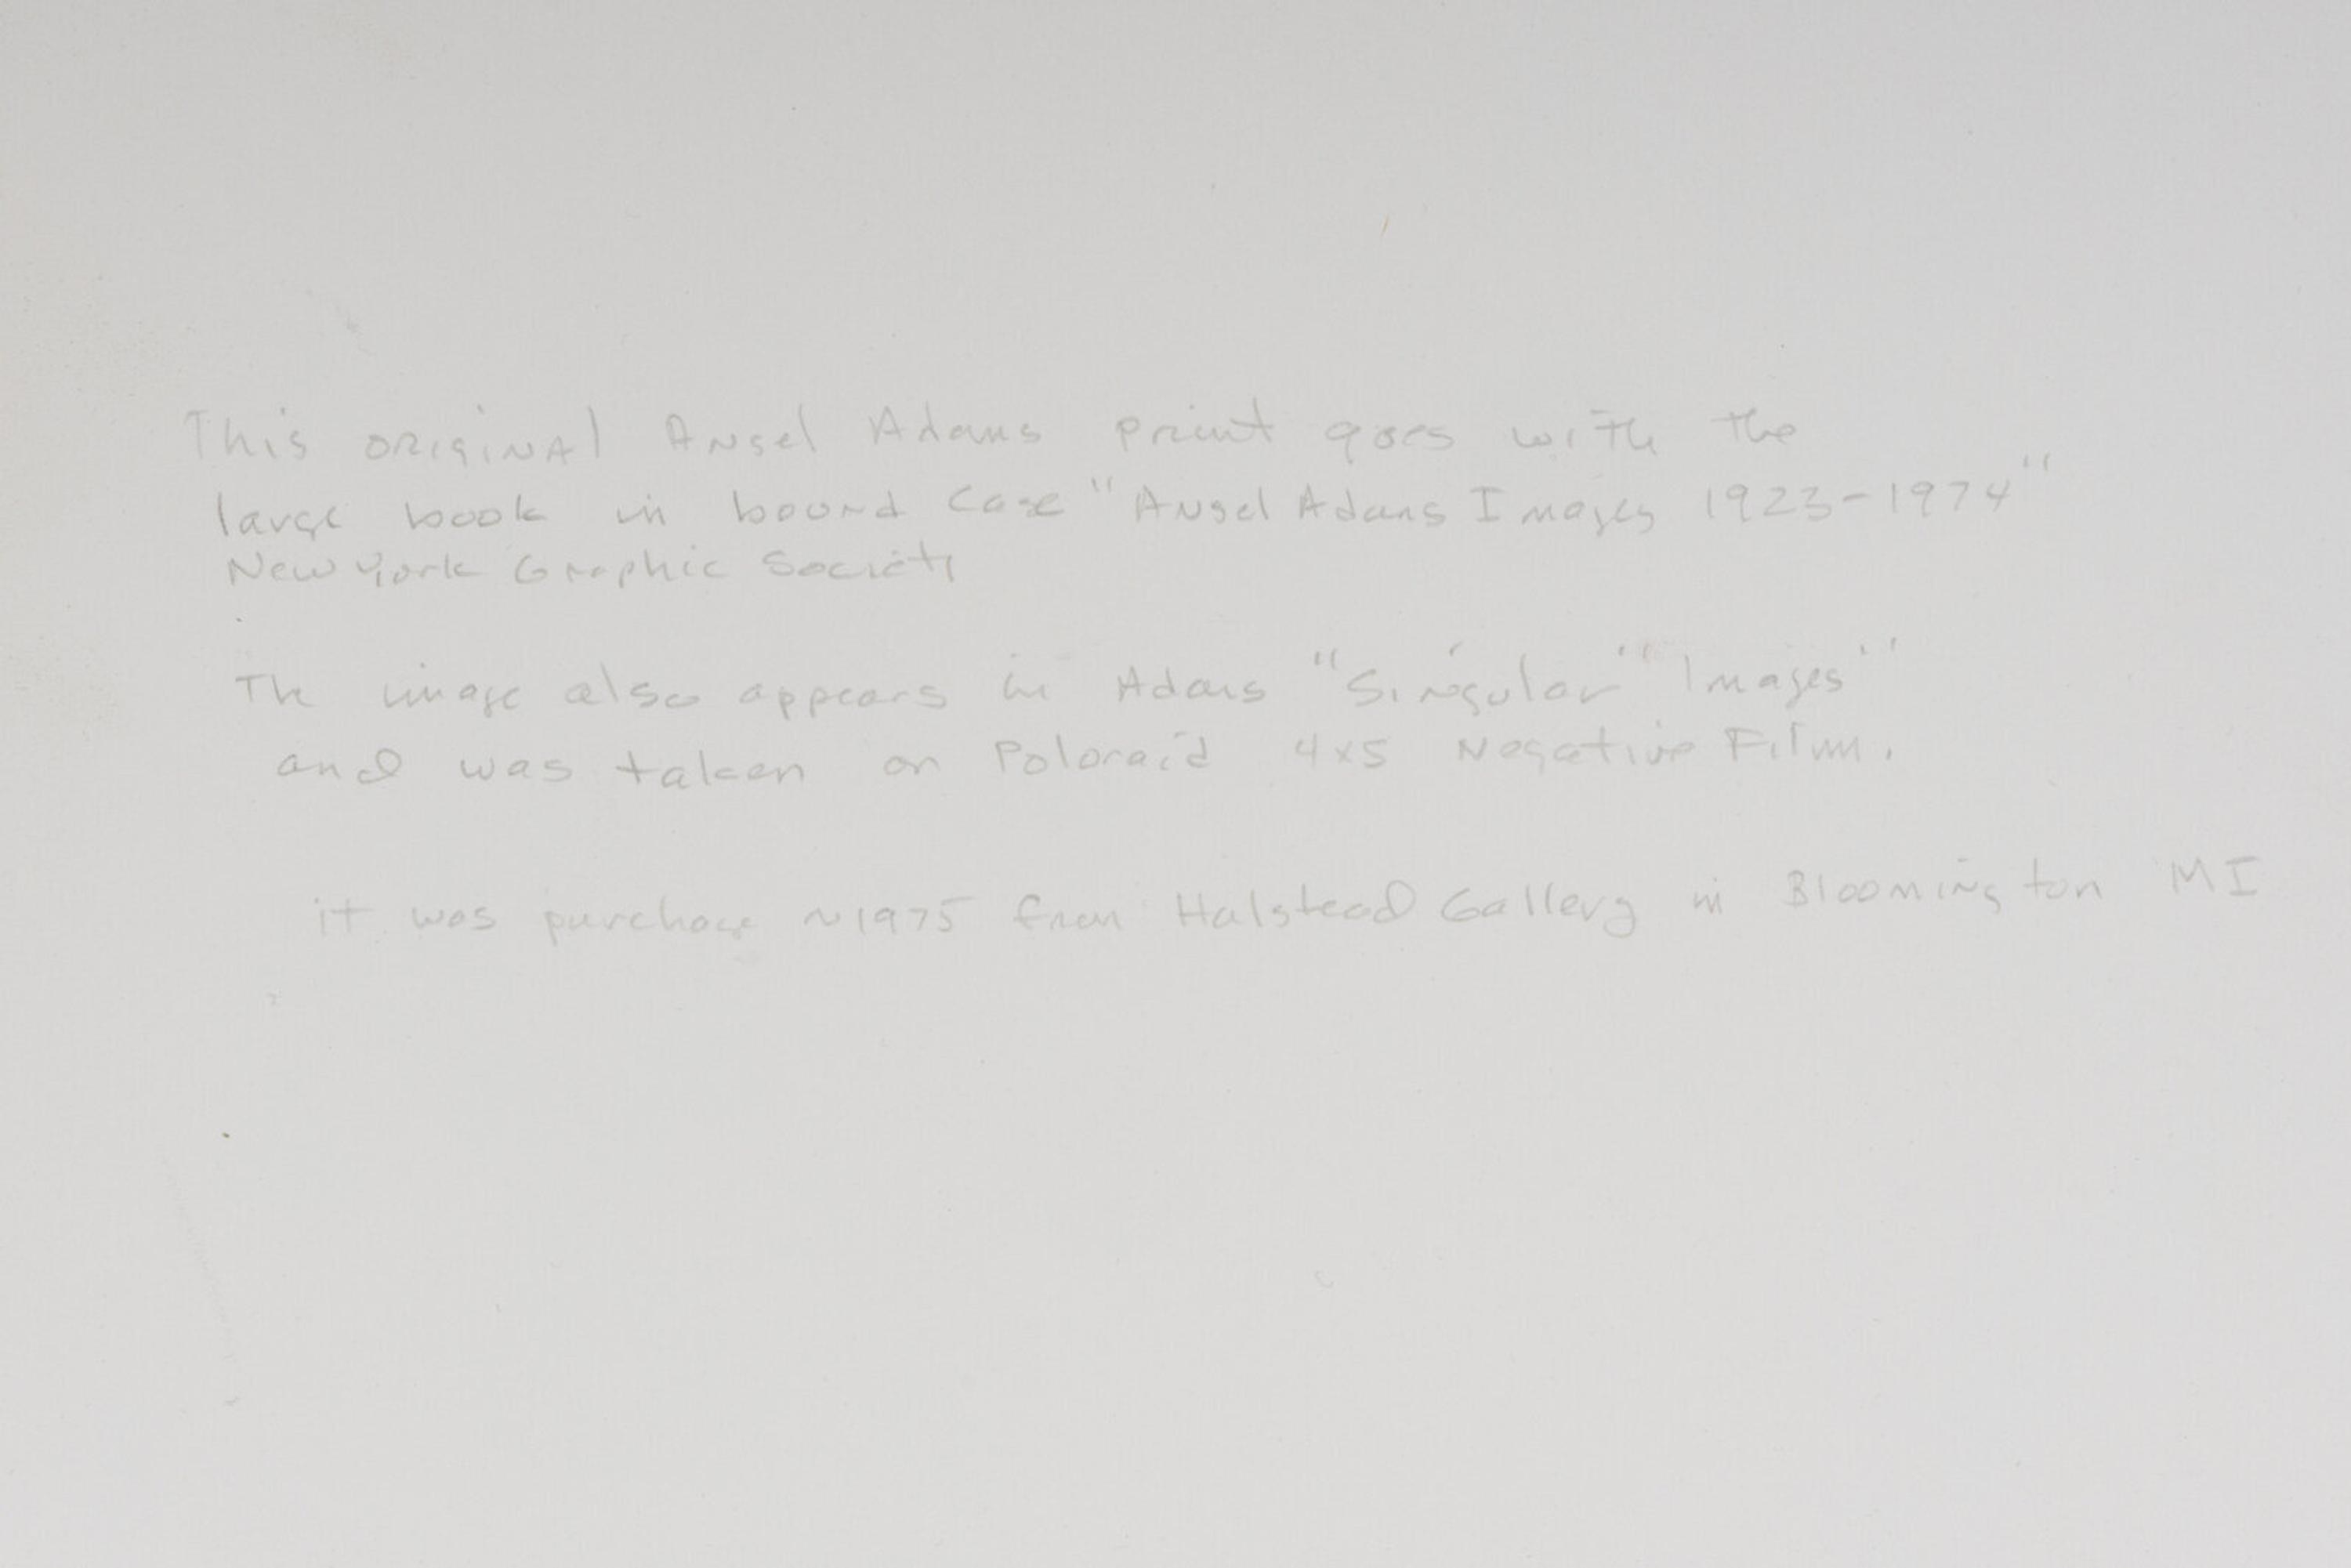 This ORIGINAl Ansel Adams print goes with the
large book in bound case "Ansel Adams Images 1923-1974"
New York Graphic Society
The image also appears in Adams "Singular" Images"
and was taken on Poloraid 4x5 Negative Film.
it was purchase ~1975 from Halstead Gallery in Bloomington MI